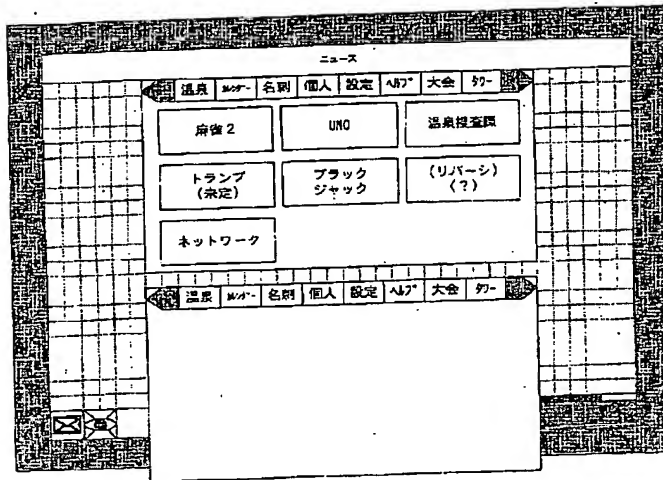 ニュース
温泉 カレンダー 名刺 個人 設定 ヘルプ 大会 タワー
麻雀2 UNO 温泉捜査隊
トランプ
(未定)
ブラック
ジャック
(リバーシ)
(?)
ネットワーク
温泉 カレンダー 名刺 個人 設定 ヘルプ 大会 タワー